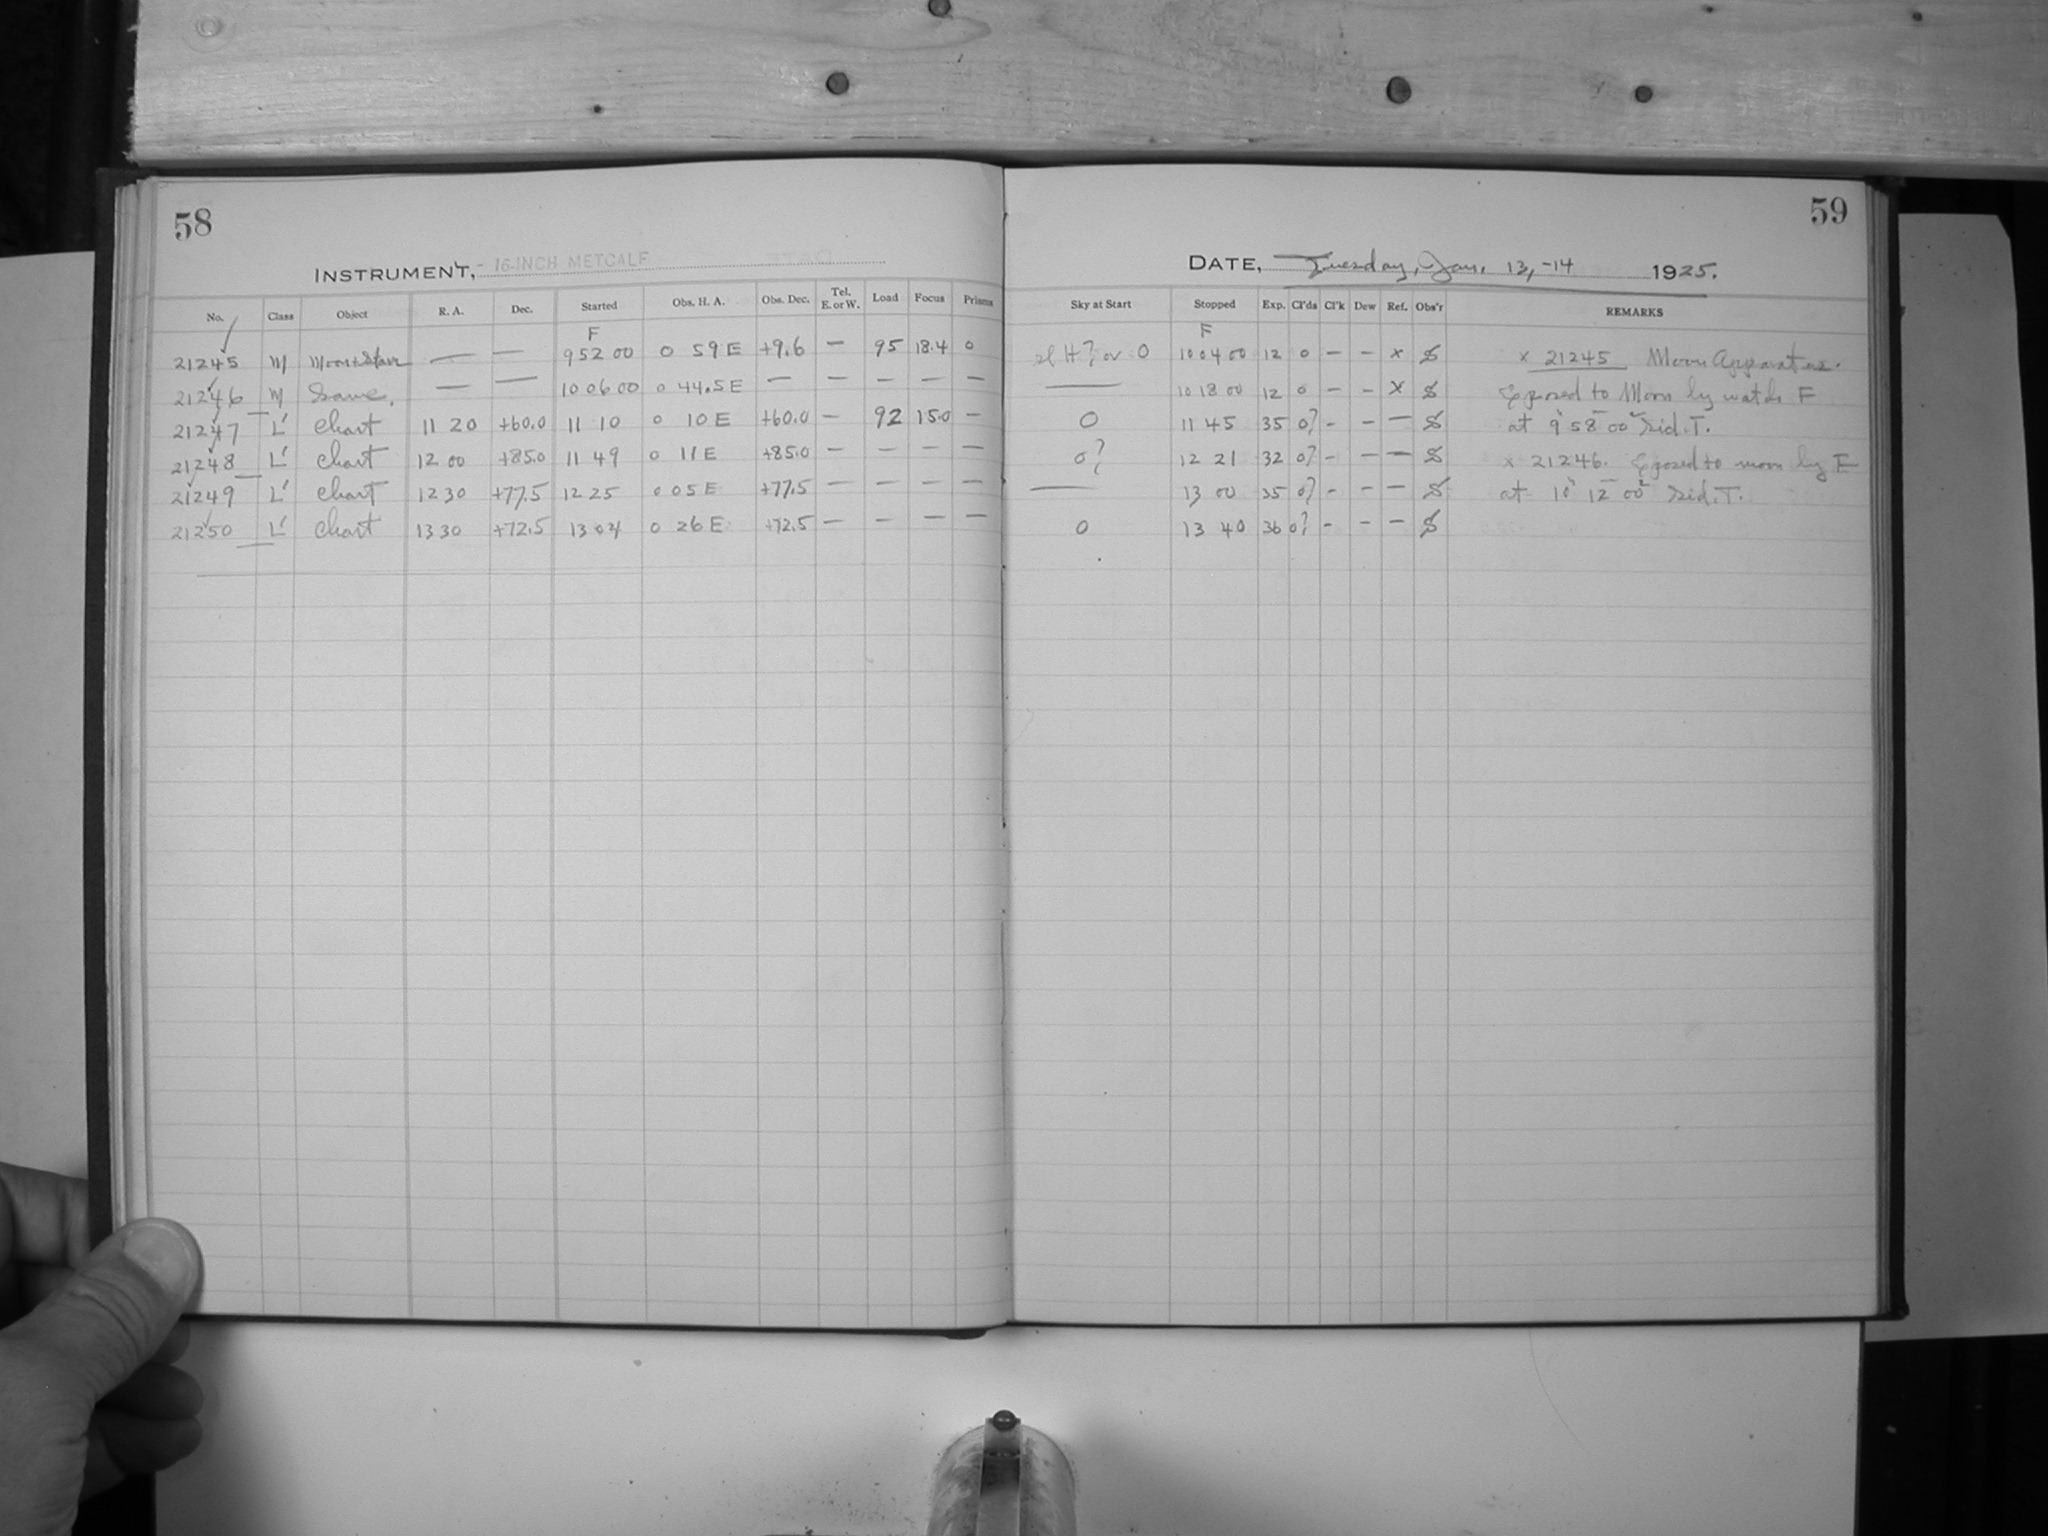 58
INSTRUMENT, - 16-INCH METCALF
No. Class Object R. A. Dec. Started Obs. H. A. Obs. Dec. Tel. E. or W. Load Focus Prisms
F
21245 M Moon+Stars — — 9 52 00 0 59 E +9.6 — 95 18.4 0
21246 M Same. — — 10 06 00 0 44.5 E — — — — —
21247 L' Chart 11 20 +60.0 11 10 0 10 E +60.0 — 92 15.0 —
21248 L' Chart 12 00 +85.0 11 49 0 11 E +85.0 — — — —
21249 L' Chart 12 30 +77.5 12 25 0 05 E +77.5 — — — —
21250 L' Chart 13 30 +72.5 13 04 0 26 E +72.5 — — — —
59
DATE, Tuesday, Jan. 13,-14 1925.
Sky at Start Stopped Exp. Cl'ds Cl'k Dew Ref. Obs'r REMARKS
F
sl H? or 0 10 04 00 12 0 — — x x 21245 Moon Apparatus.
— 10 18 00 12 0 — — x Exposed to Moon by watch F
0 11 45 35 0? - — — at 9h 58m 00s Sid. T.
0? 12 21 32 0? - — — x 21246. Exposed to moon by F
— 13 00 35 0? - — — at 10h 12m 00s Sid. T.
0 13 40 36 0? - — —